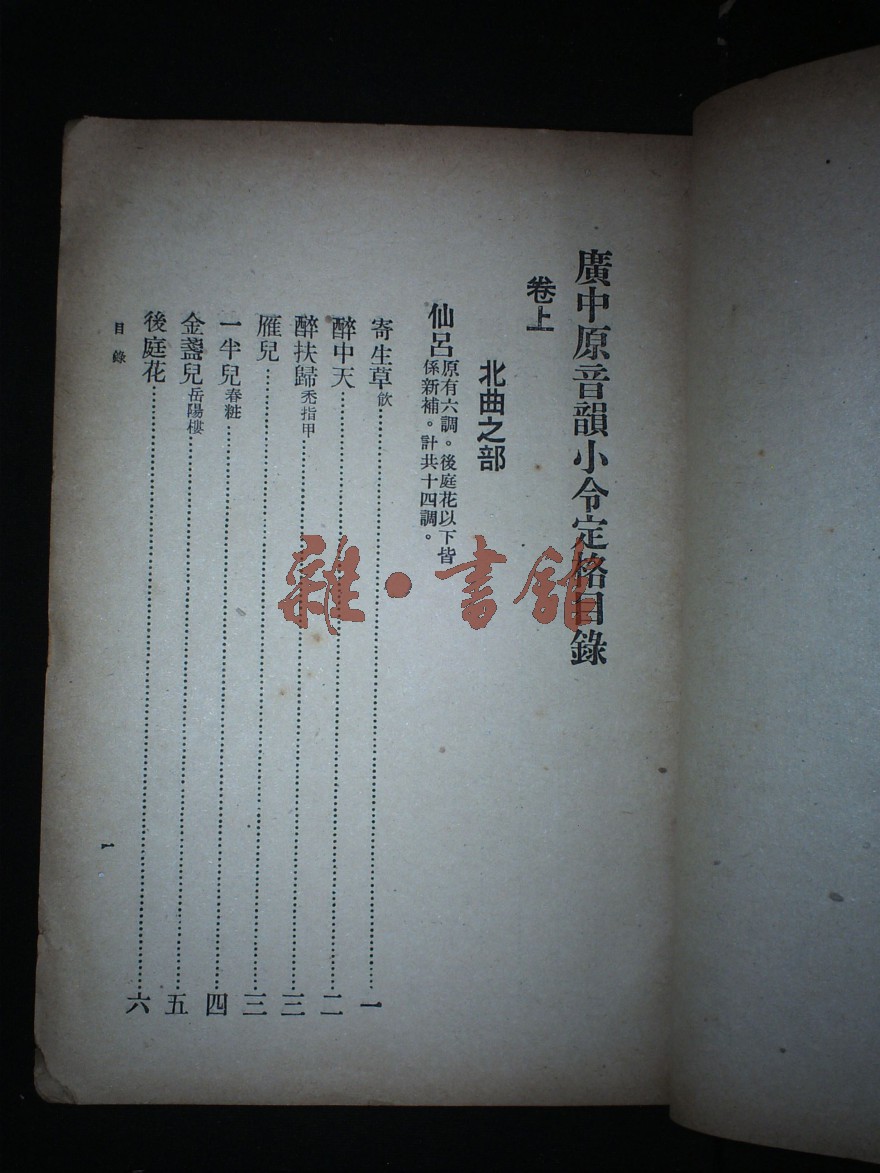 廣中原音韻小令定格目錄
卷上
北曲之部
仙呂原有六調。後庭花以下皆
係新補。計共十四調。
寄生草飲……一
醉中天……二
醉扶歸禿指甲……三
雁兒……三
一半兒春粧……四
金盞兒岳陽樓……五
後庭花……六
目錄
1
雜·書館